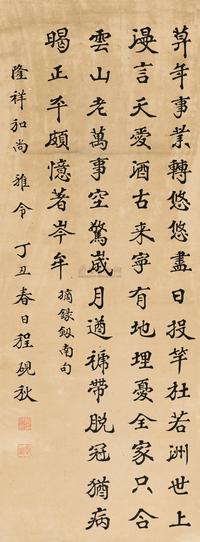 莫年事業轉悠悠盡日投竿杜若洲世上
漫言天愛酒古来寧有地埋憂全家只合
雲山老萬事空驚歲月遒褫帶脫冠猶病
暍正平頗憶著岑牟 摘錄釼南句
隆祥和尚雅令丁丑春日程硯秋